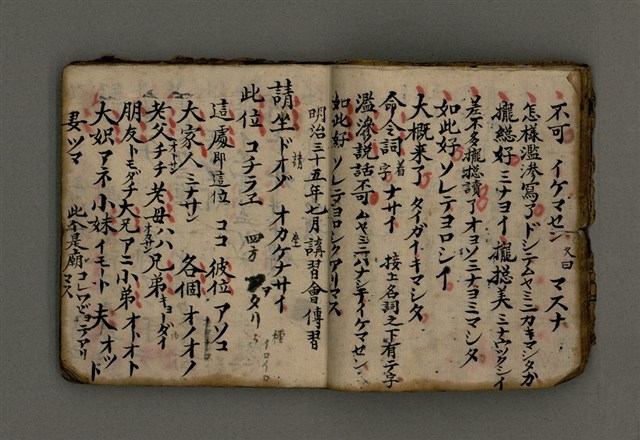 不可 イケマセン 又曰 マスナ
怎樣濫滲寫了 ドシテムヤミニカキマシタガ
攏總好 ミナヨイ 攏總美 ミナウツクシイ
差不多攏總讀了 オヨソミナヨミマシタ
如此好 ソレデヨロシイ
大概来了 タイガイキマシタ
命令詞 着字 ナサイ 接在名詞之下有テ字
濫滲説話不可 ムヤミニハナシテイケマセン
如此好 ソレデヨロシクアリマス
明治三十五年七月講習會傳習
請坐 ドオゾ 請 オカケナサイ 坐
此位 コチラヱ 四方 アタリ 種 イロイロ
這處 即這位 ココ 彼位 アソコ
大家人 ミナサン 各個 オノオノ
老父 チチ オトツ 老母 ハハ オカサン 兄弟 キョーダイ
朋友 トモダチ 大兄 アニ 小弟 オトオト
大姐 アネ 小妹 イモート 夫 オット
妻 ツマ 此本是廟 コレワビョーデアリマス